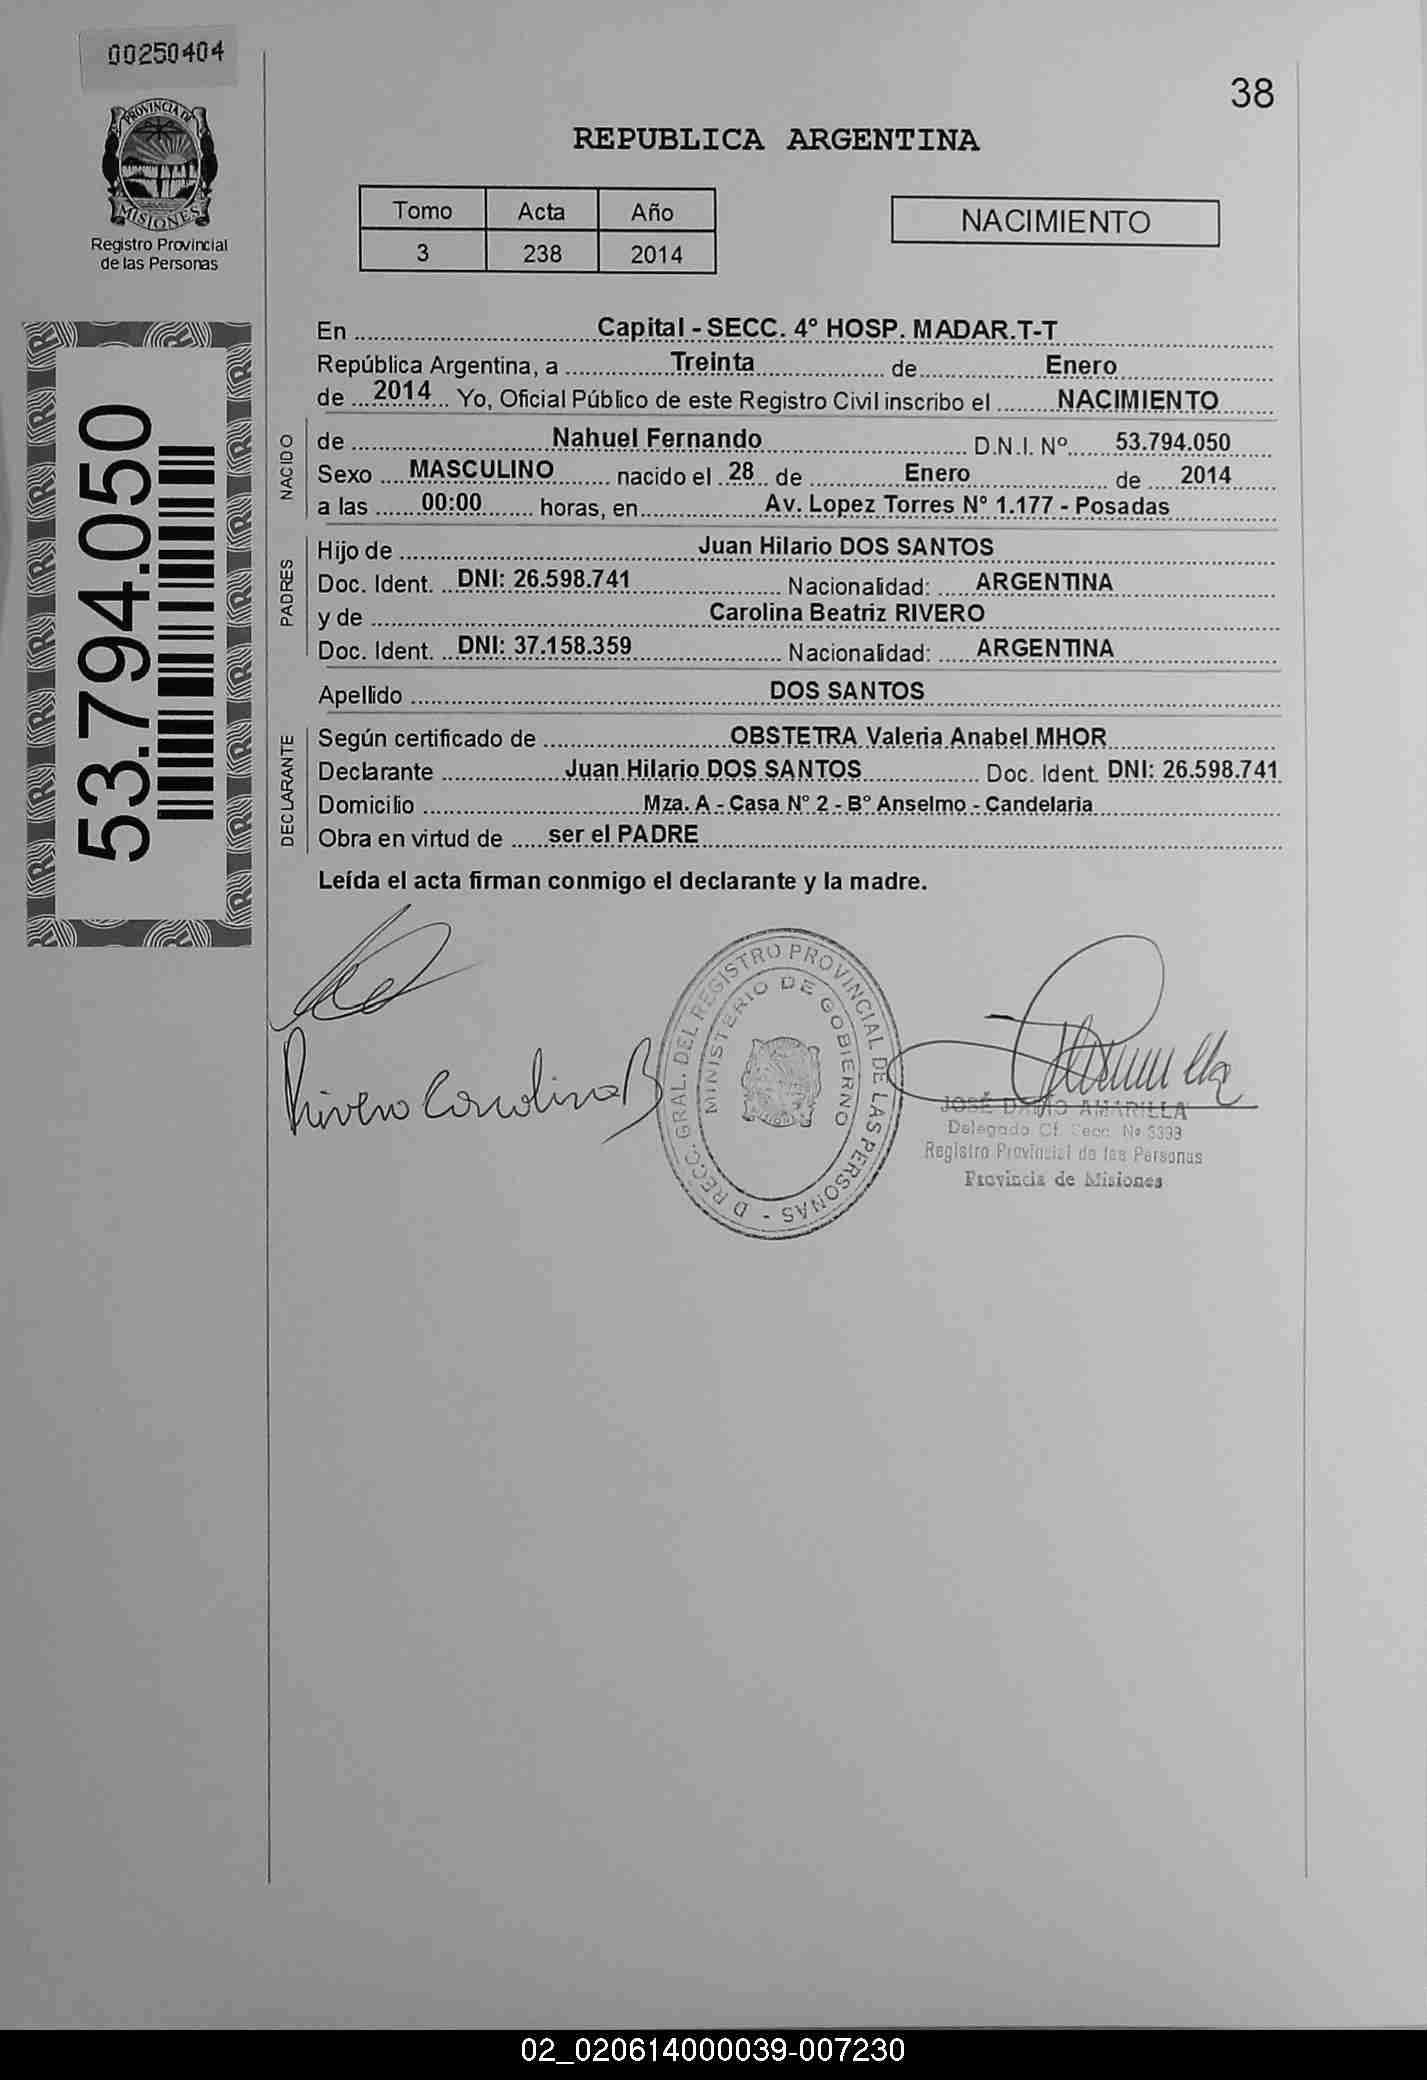 00250404
38
PROVINCIA DE
MISIONES
Registro Provincial
de las Personas
REPUBLICA ARGENTINA
Tomo Acta Año
3 238 2014
NACIMIENTO
53.794.050
En Capital - SECC. 4° HOSP. MADAR.T-T
República Argentina, a Treinta de Enero
de 2014 Yo, Oficial Público de este Registro Civil inscribo el NACIMIENTO
NACIDO
de Nahuel Fernando D.N.I. N° 53.794.050
Sexo MASCULINO nacido el 28 de Enero de 2014
a las 00:00 horas, en Av. Lopez Torres N° 1.177 - Posadas
PADRES
Hijo de Juan Hilario DOS SANTOS
Doc. Ident. DNI: 26.598.741 Nacionalidad: ARGENTINA
y de Carolina Beatriz RIVERO
Doc. Ident. DNI: 37.158.359 Nacionalidad: ARGENTINA
Apellido DOS SANTOS
DECLARANTE
Según certificado de OBSTETRA Valeria Anabel MHOR
Declarante Juan Hilario DOS SANTOS Doc. Ident. DNI: 26.598.741
Domicilio Mza. A - Casa N° 2 - B° Anselmo - Candelaria
Obra en virtud de ser el PADRE
Leída el acta firman conmigo el declarante y la madre.
Rivero Carolina B
DIRECC. GRAL. DEL REGISTRO PROVINCIAL DE LAS PERSONAS -
MINISTERIO DE GOBIERNO
JOSÉ DARIO AMARILLA
Delegado Cf. Secc. Nº
Registro Provincial de las Personas
Provincia de Misiones
02_020614000039-007230